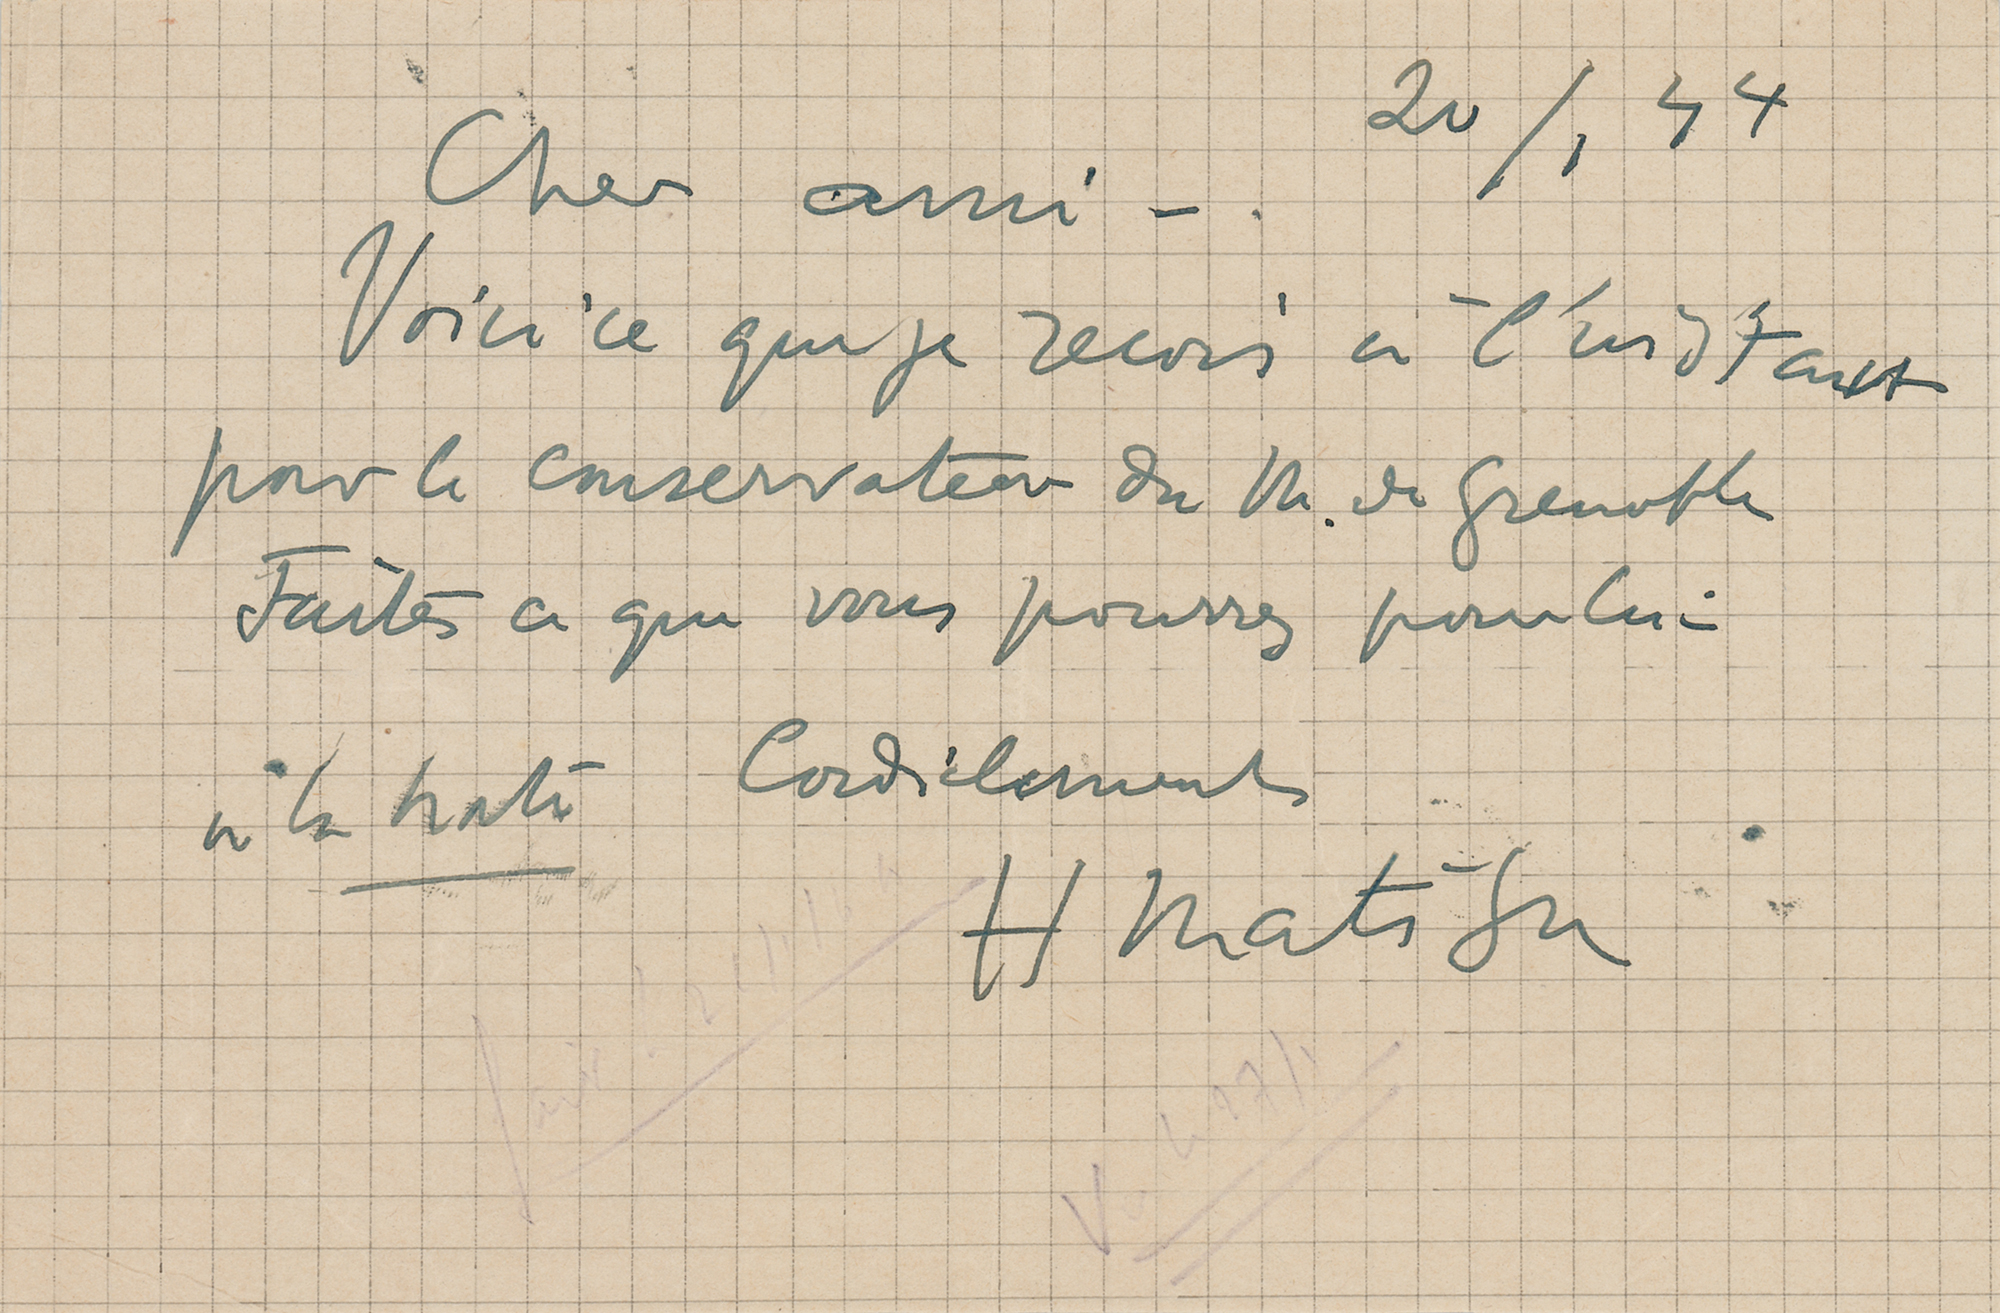 20/1 44
Cher ami -
Voici ce que je recois à l'instant
pour le conservateur du M. de Grenoble
Faites ce que vous pourrez pour lui -
à la hate Cordialement
H Matisse